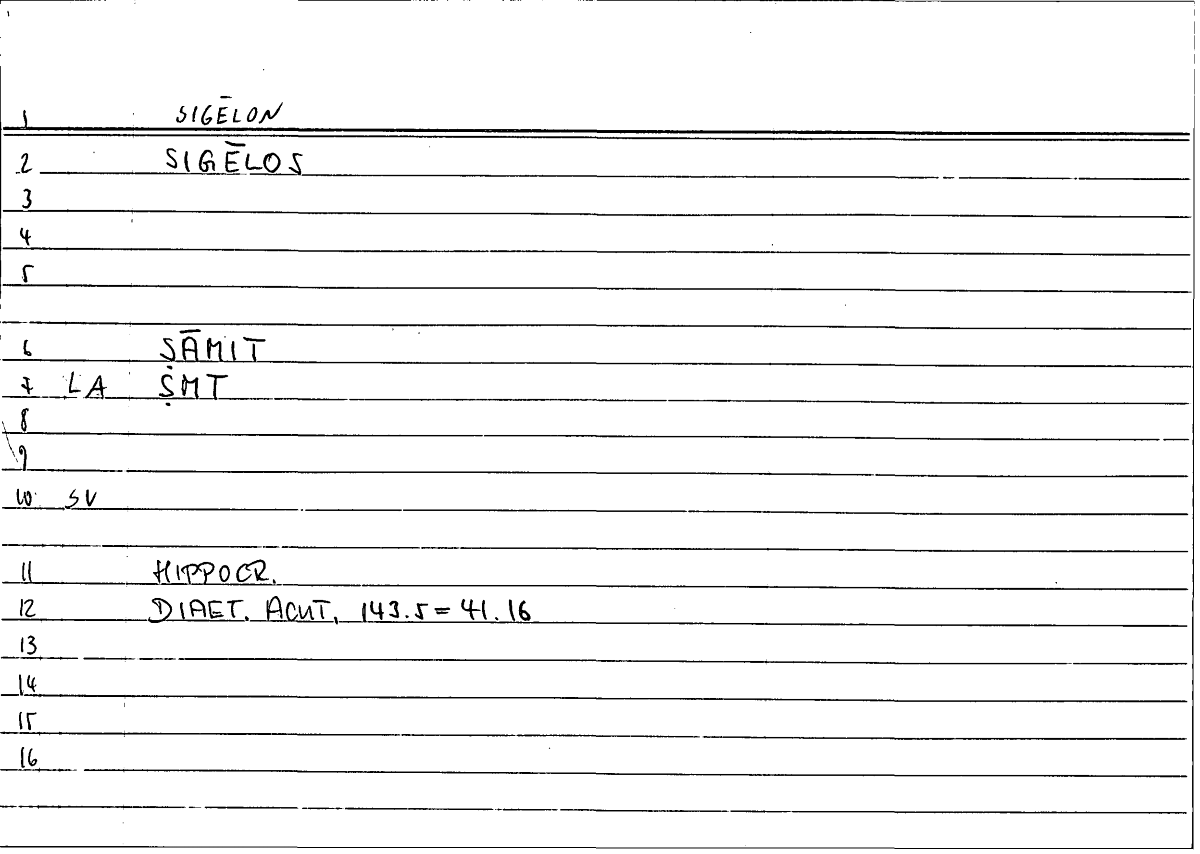 1 SIGĒLON
2 SIGĒLOS
3
4
5
6 ṢĀMIT
7 LA ṢMT
8
9
10 SV
11 HIPPOCR.
12 DIAET. ACUT. 143.5 = 41.16
13
14
15
16